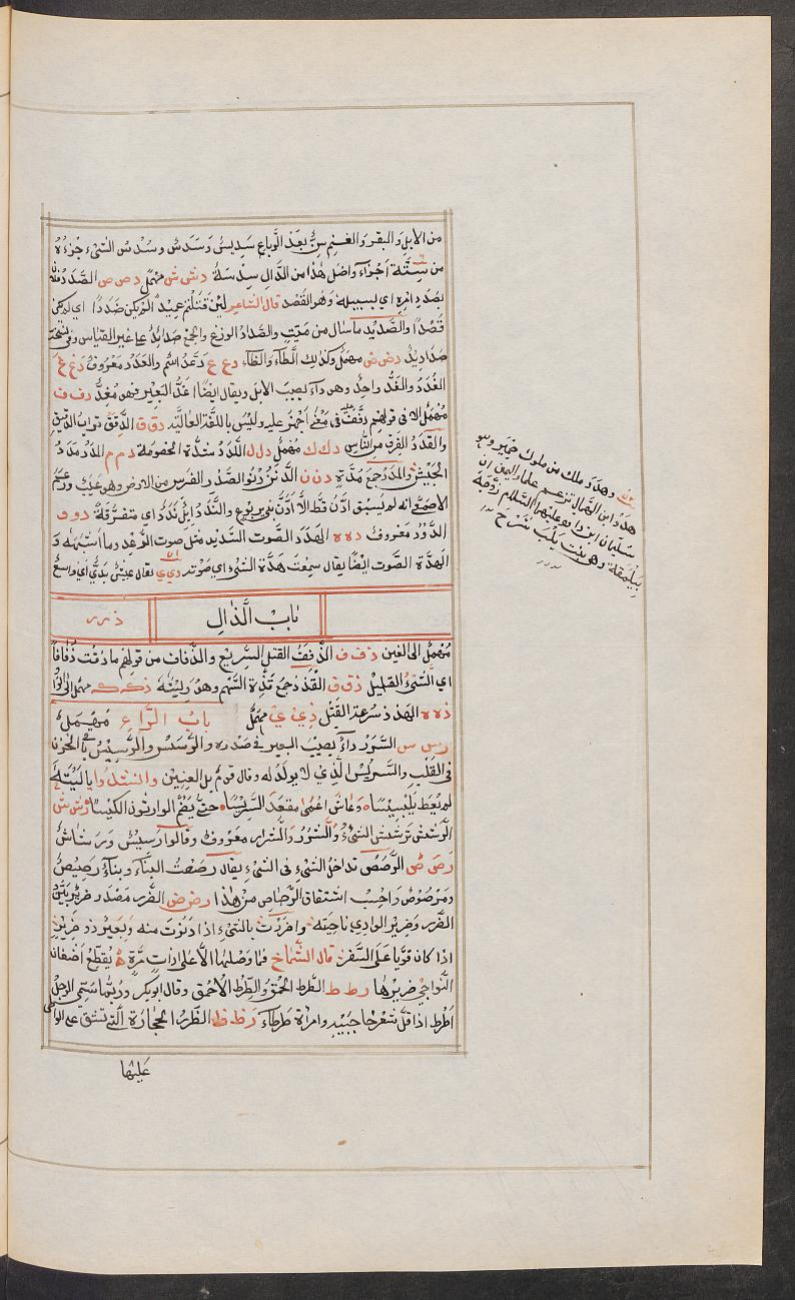 من الابل والبقر والغنم سن بعد الرباع سديس وسدس وسدس الشيء جزء
من ستة اجزاء واصل هذا من الدال سدسة د ش ش مهمل د ص ص الصدد
بصدد امره اي لسبيله وهو القصد قال الشاعر لئن قتلتم عميدا لم يكن صددا اي لم يكن
قصدا والصديد ماسال من ميت والصداد الوزغ والجمع صدائد على غير القياس وفي نسخة
صداديد د ض ض مهمل وكذلك الطاء والظاء د ع ع دعد اسم والعدد معروف د غ غ
الغدد والغد واحد وهو داء يصيب الابل ويقال ايضا اغد البعير فهو مغد د ف ف
مهمل الا في قولهم دفف في معنى اجهز عليه وليس باللغة العالية د ق ق الدقق تراب الدقيق
والقدد الفرق من الناس د ك ك مهمل د ل ل اللدد شدة الخصومة د م م المدد مدد
الجيش والمدد جمع مدة د ن ن الدنن دنو الصدر الفرس من الارض وهو عيب وزعم
الاصمعي انه لم يسبق ادن قط الا ادن بني يربوع والندد ابل ندد اي متفرقة د و و
الدود معروف د ه ه الهدد الصوت الشديد مثل صوت الرعد وما اشبهه و
الهدة الصوت ايضا يقال سمعت هدة الشيء اي صوته د ي ي يقال عيش يدي اي واسع
باب الذال
ذ ر ر
مهمل الى الفين ذ ف ف الذفف القتل السريع والذفاف من قولهم ما ذقت ذفافا
اي الشيء القليل ذ ق ق القذذ جمع قذة السهم وهو ريشه ذ ك ك مهمل الى الواو
ذ ه ه الهذذ سرعة القتل ذ ي ي مهمل باب الراء مهمل
ر س س السرر داء يصيب البعير في صدره والرسس والرسيس بقاء الحزن
في القلب والسريس الذي لا يولد له وقال قوم بل العنين وانشدوا يا ليته
لم يعط يلبيسا وعاش اعمى مقعدا سريسا حتى يضم الوارثون الكيسا ر ش ش
الرشش ترشش الشيء والشرر والشرار معروف وقالوا رسيش ورشاش
ر ص ص الرصص تداخل الشيء في الشيء يقال رصصت البناء وبناء رصيص
ومرصوص واحسب اشتقاق الرصاص من هذا ر ض ض الضرر مصدر ضرير بين
الضرر وضرير الوادي ناحيته واضررت بالشيء اذا دنوت منه وبعير ذو ضرير
اذا كان قويا على السفر قال الشماخ فما وصلها الا على ذات مرة يقطع اضغان
النواجي ضريرها ر ط ط الطرط الحمق والطرط الاحمق وقال ابو بكر وربما سمي الرجل
اطرط اذا قل شعر حاجبيه وامراة طرطاء ر ظ ظ الظرر الحجارة التي تشق على الواطي
عليها
وهدد ملك من ملوك حمير وهو
هدد ابن الهمال تزعم علماء اليمن ان
سليمان ابن داود عليهما السلام زوجه
بيلمقة وهي بنت يلب شرح